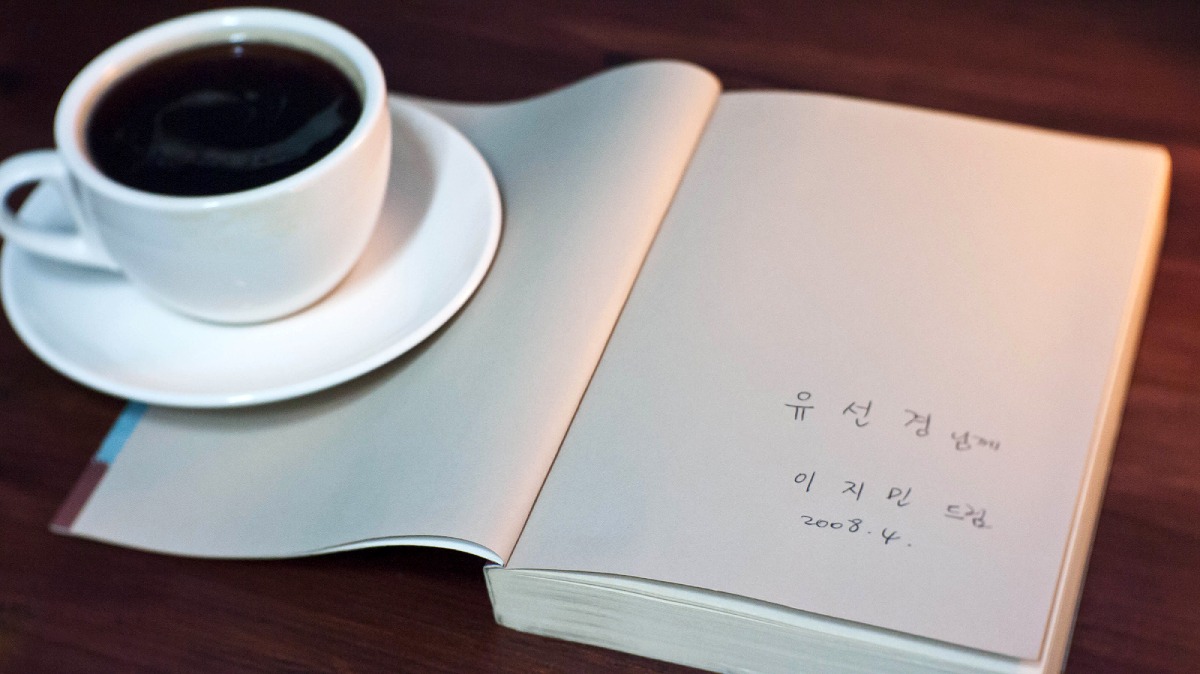 유선경 님께
이지민 드림
2008.4.